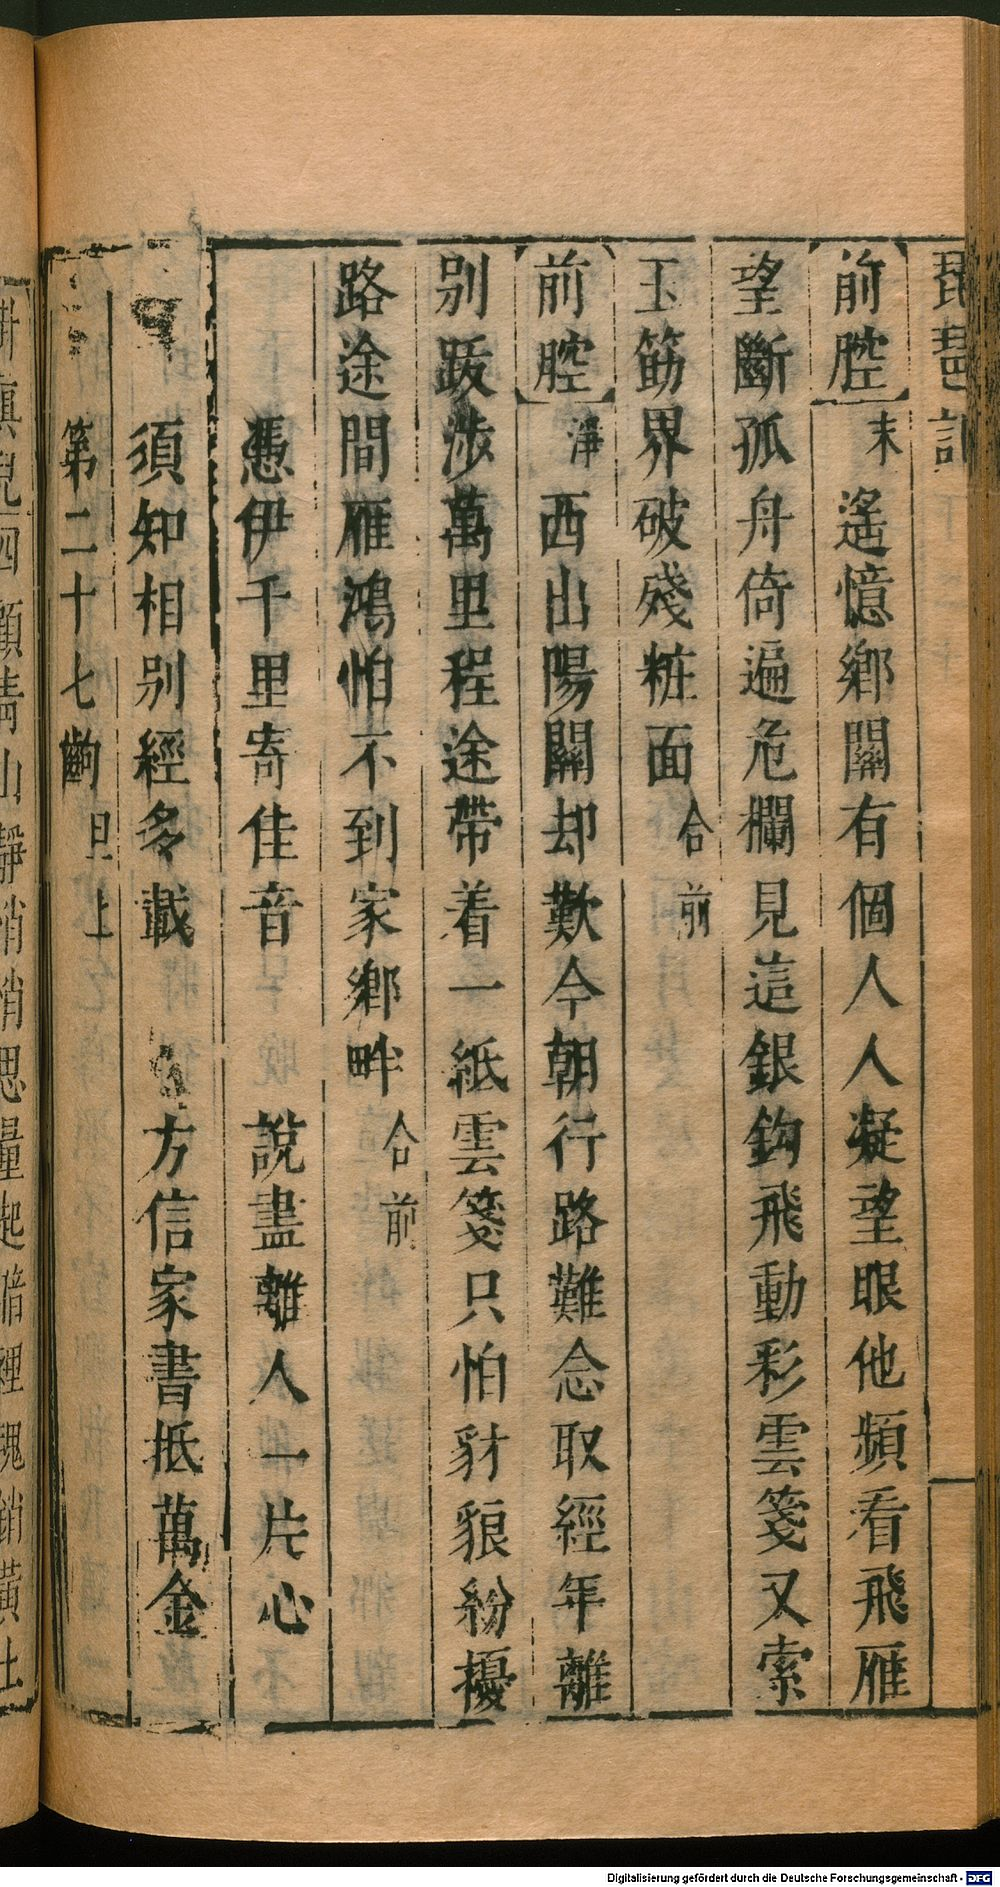 琵琶記
前腔 末 遙憶鄉關有個人人凝望眼他頻看飛雁
望斷孤舟倚遍危欄見這銀鈎飛動彩雲箋又索
玉筯界破殘粧面 合 前
前腔 淨 西出陽關却歎今朝行路難念取經年離
别跋涉萬里程途帶着一紙雲箋只怕豺狼紛擾
路途間雁鴻怕不到家鄉畔 合 前
憑伊千里寄佳音 說盡離人一片心
須知相别經多載 方信家書抵萬金
第二十七齣 旦上
四顧青山靜悄悄思量起暗裡魂銷黃土
Digitalisierung gefördert durch die Deutsche Forschungsgemeinschaft - DFG